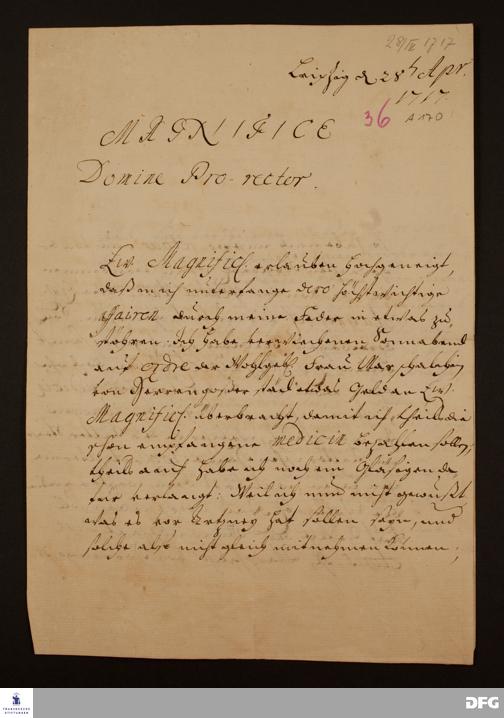 28/IV 1717
Leipzig d. 28t Apr.
1717.
36 A170
MAGNIFICE
Domine Pro-rector.
Ew. Magnific. erlauben hochgeneigt,
daß mich unterfange dero höchstwichtige
affairen durch meine Feder in etwas zu
stöhren. Ich habe verwiechenen Sonnabend
auf ordre der Wohlgeb. Frau Marschalchin
von Herrengoßerstädt etwas Geld an Ew.
Magnific. überbracht, damit ich theils die
schon empfangene medicin bezahlen sollen,
theils auch habe ich noch ein Gläsigen da
für verlangt: Weil ich nun nicht gewußt
was es vor Artzney hat sollen seyn, und
solche also nicht gleich mitnehmen können;
FRANCKESCHE
STIFTUNGEN
DFG